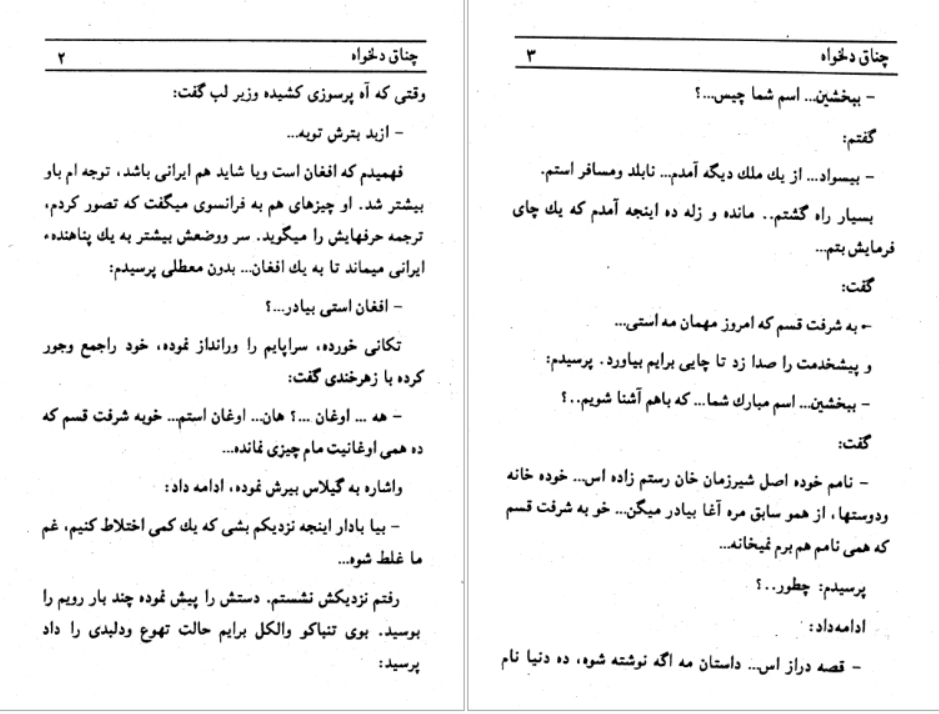 چناق دلخواه ۲
وقتی که آه پرسوزی کشیده وزیر لب گفت:
– ازبد بترش توبه...
فهمیدم که افغان است ویا شاید هم ایرانی باشد، توجه ام باو
بیشتر شد. او چیزهای هم به فرانسوی میگفت که تصور کردم،
ترجمه حرفهایش را میگوید. سر ووضعش بیشتر به یك پناهندهء
ایرانی میماند تا به یك افغان... بدون معطلی پرسیدم:
– افغان استی بیادر...؟
تکانی خورده، سراپایم را ورانداز نموده، خود راجمع وجور
کرده با زهرخندی گفت:
– هه ... اوغان ...؟ هان... اوغان استم... خوبه شرفت قسم که
ده همی اوغانیت مام چیزی نمانده...
واشاره به گیلاس بیرش نموده، ادامه داد:
– بیا بادار اینجه نزدیکم بشی که یك کمی اختلاط کنیم، غم
ما غلط شوه...
رفتم نزدیکش نشستم. دستش را پیش نموده چند بار رویم را
بوسید. بوی تنباکو والکل برایم حالت تهوع ودلبدی را داد
پرسید:
چناق دلخواه ۳
– ببخشین... اسم شما چیس...؟
گفتم:
– بیسواد... از یك ملك دیگه آمدم... نابلد ومسافر استم.
بسیار راه گشتم.. مانده و زله ده اینجه آمدم که یك چای
فرمایش بتم...
گفت:
– به شرفت قسم که امروز مهمان مه استی...
و پیشخدمت را صدا زد تا چایی برایم بیاورد. پرسیدم:
– ببخشین... اسم مبارك شما... که باهم آشنا شویم..؟
گفت:
– نامم خوده اصل شیرزمان خان رستم زاده اس... خوده خانه
ودوستها، از همو سابق مره آغا بیادر میگن... خو به شرفت قسم
که همی نامم هم برم نمیخانه...
پرسیدم: چطور..؟
ادامه‌داد:
– قصه دراز اس... داستان مه اگه نوشته شوه، ده دنیا نام